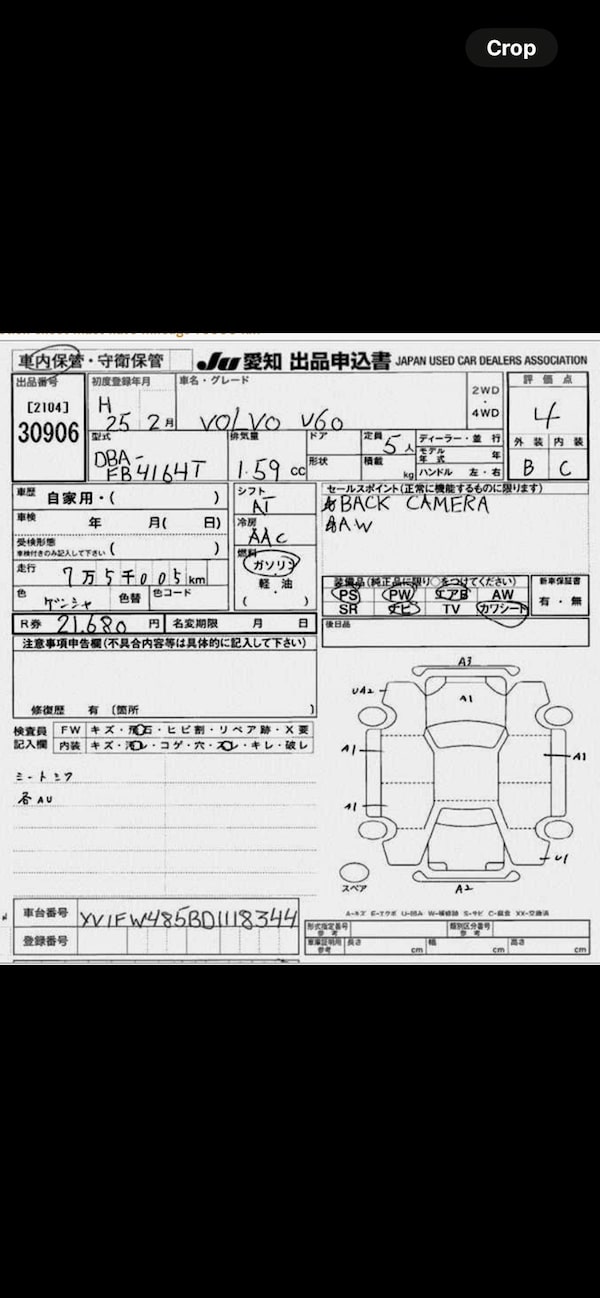 Crop
車内保管・守衛保管 JU 愛知 出品申込書 JAPAN USED CAR DEALERS ASSOCIATION
出品番号 初度登録年月 車名・グレード 2WD・4WD 評価点
[2104] H 25 2月 VOLVO V60 4
30906 型式 排気量 ドア 定員 5人 ディーラー・並行 外装 内装
DBA-FB4164T 1.59 cc 形状 積載 kg モデル年式 年 B C
ハンドル 左・右
車歴 自家用・( ) シフト AT セールスポイント(正常に機能するものに限ります)
車検 年 月( 日) 冷房 AAC BACK CAMERA
受検形態 車検付きのみ記入して下さい ( ) 燃料 AW
走行 7万5千005km ガソリン 装備品(純正品に限り○をつけてください) 新車保証書
色 ゲンシャ 色替 色コード 軽・油 PS PW エアB AW 有・無
( ) SR ナビ TV カワシート
R券 21,680 円 名変期限 月 日 後日品
注意事項申告欄(不具合内容等は具体的に記入して下さい)
修復歴 有 〔箇所 〕
検査員 FW キズ・飛石・ヒビ割・リペア跡・X要
記入欄 内装 キズ・汚レ・コゲ・穴・スレ・キレ・破レ
各AU
A3
UA2 A1
A1 A1
A1
U1
スペア A2
A-キズ E-エクボ U-凹み W-補修跡 S-サビ C-腐食 XX-交換済
車台番号 YV1FW485BD1118344
登録番号
形式指定番号 参考 類別区分番号 参考
車庫証明用 参考 長さ cm 幅 cm 高さ cm